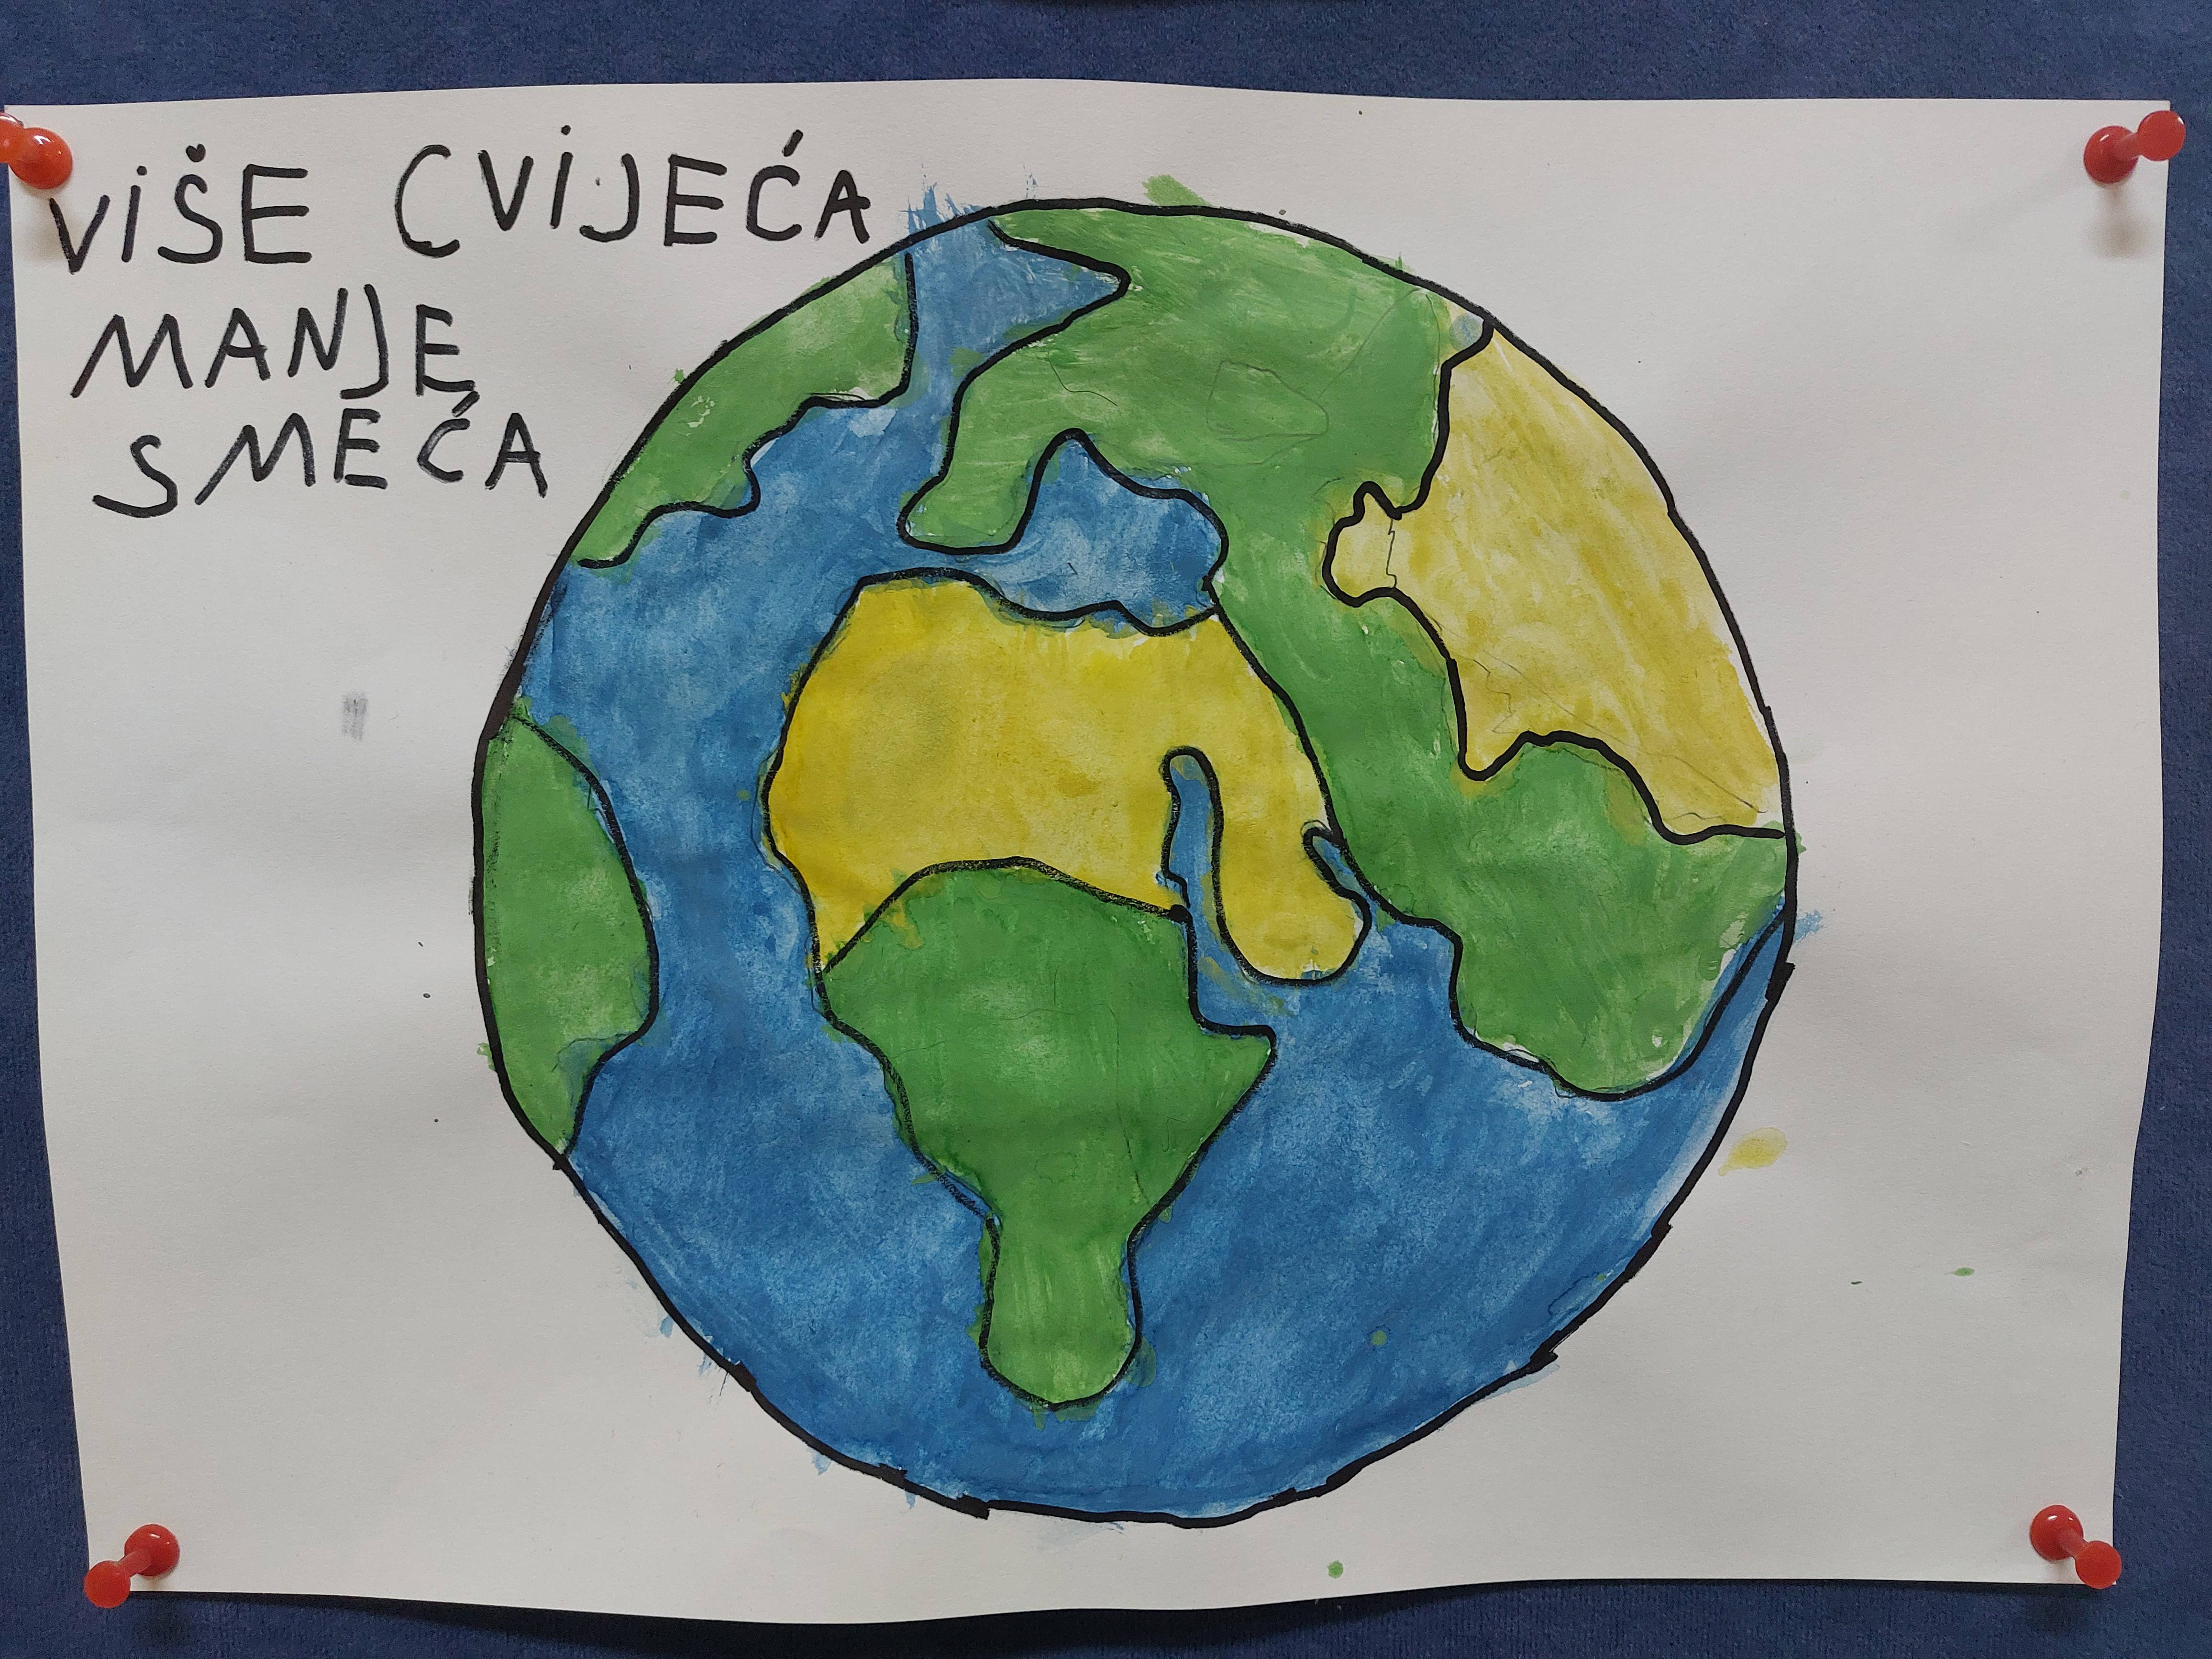 VIŠE CVIJEĆA
MANJE
SMEĆA